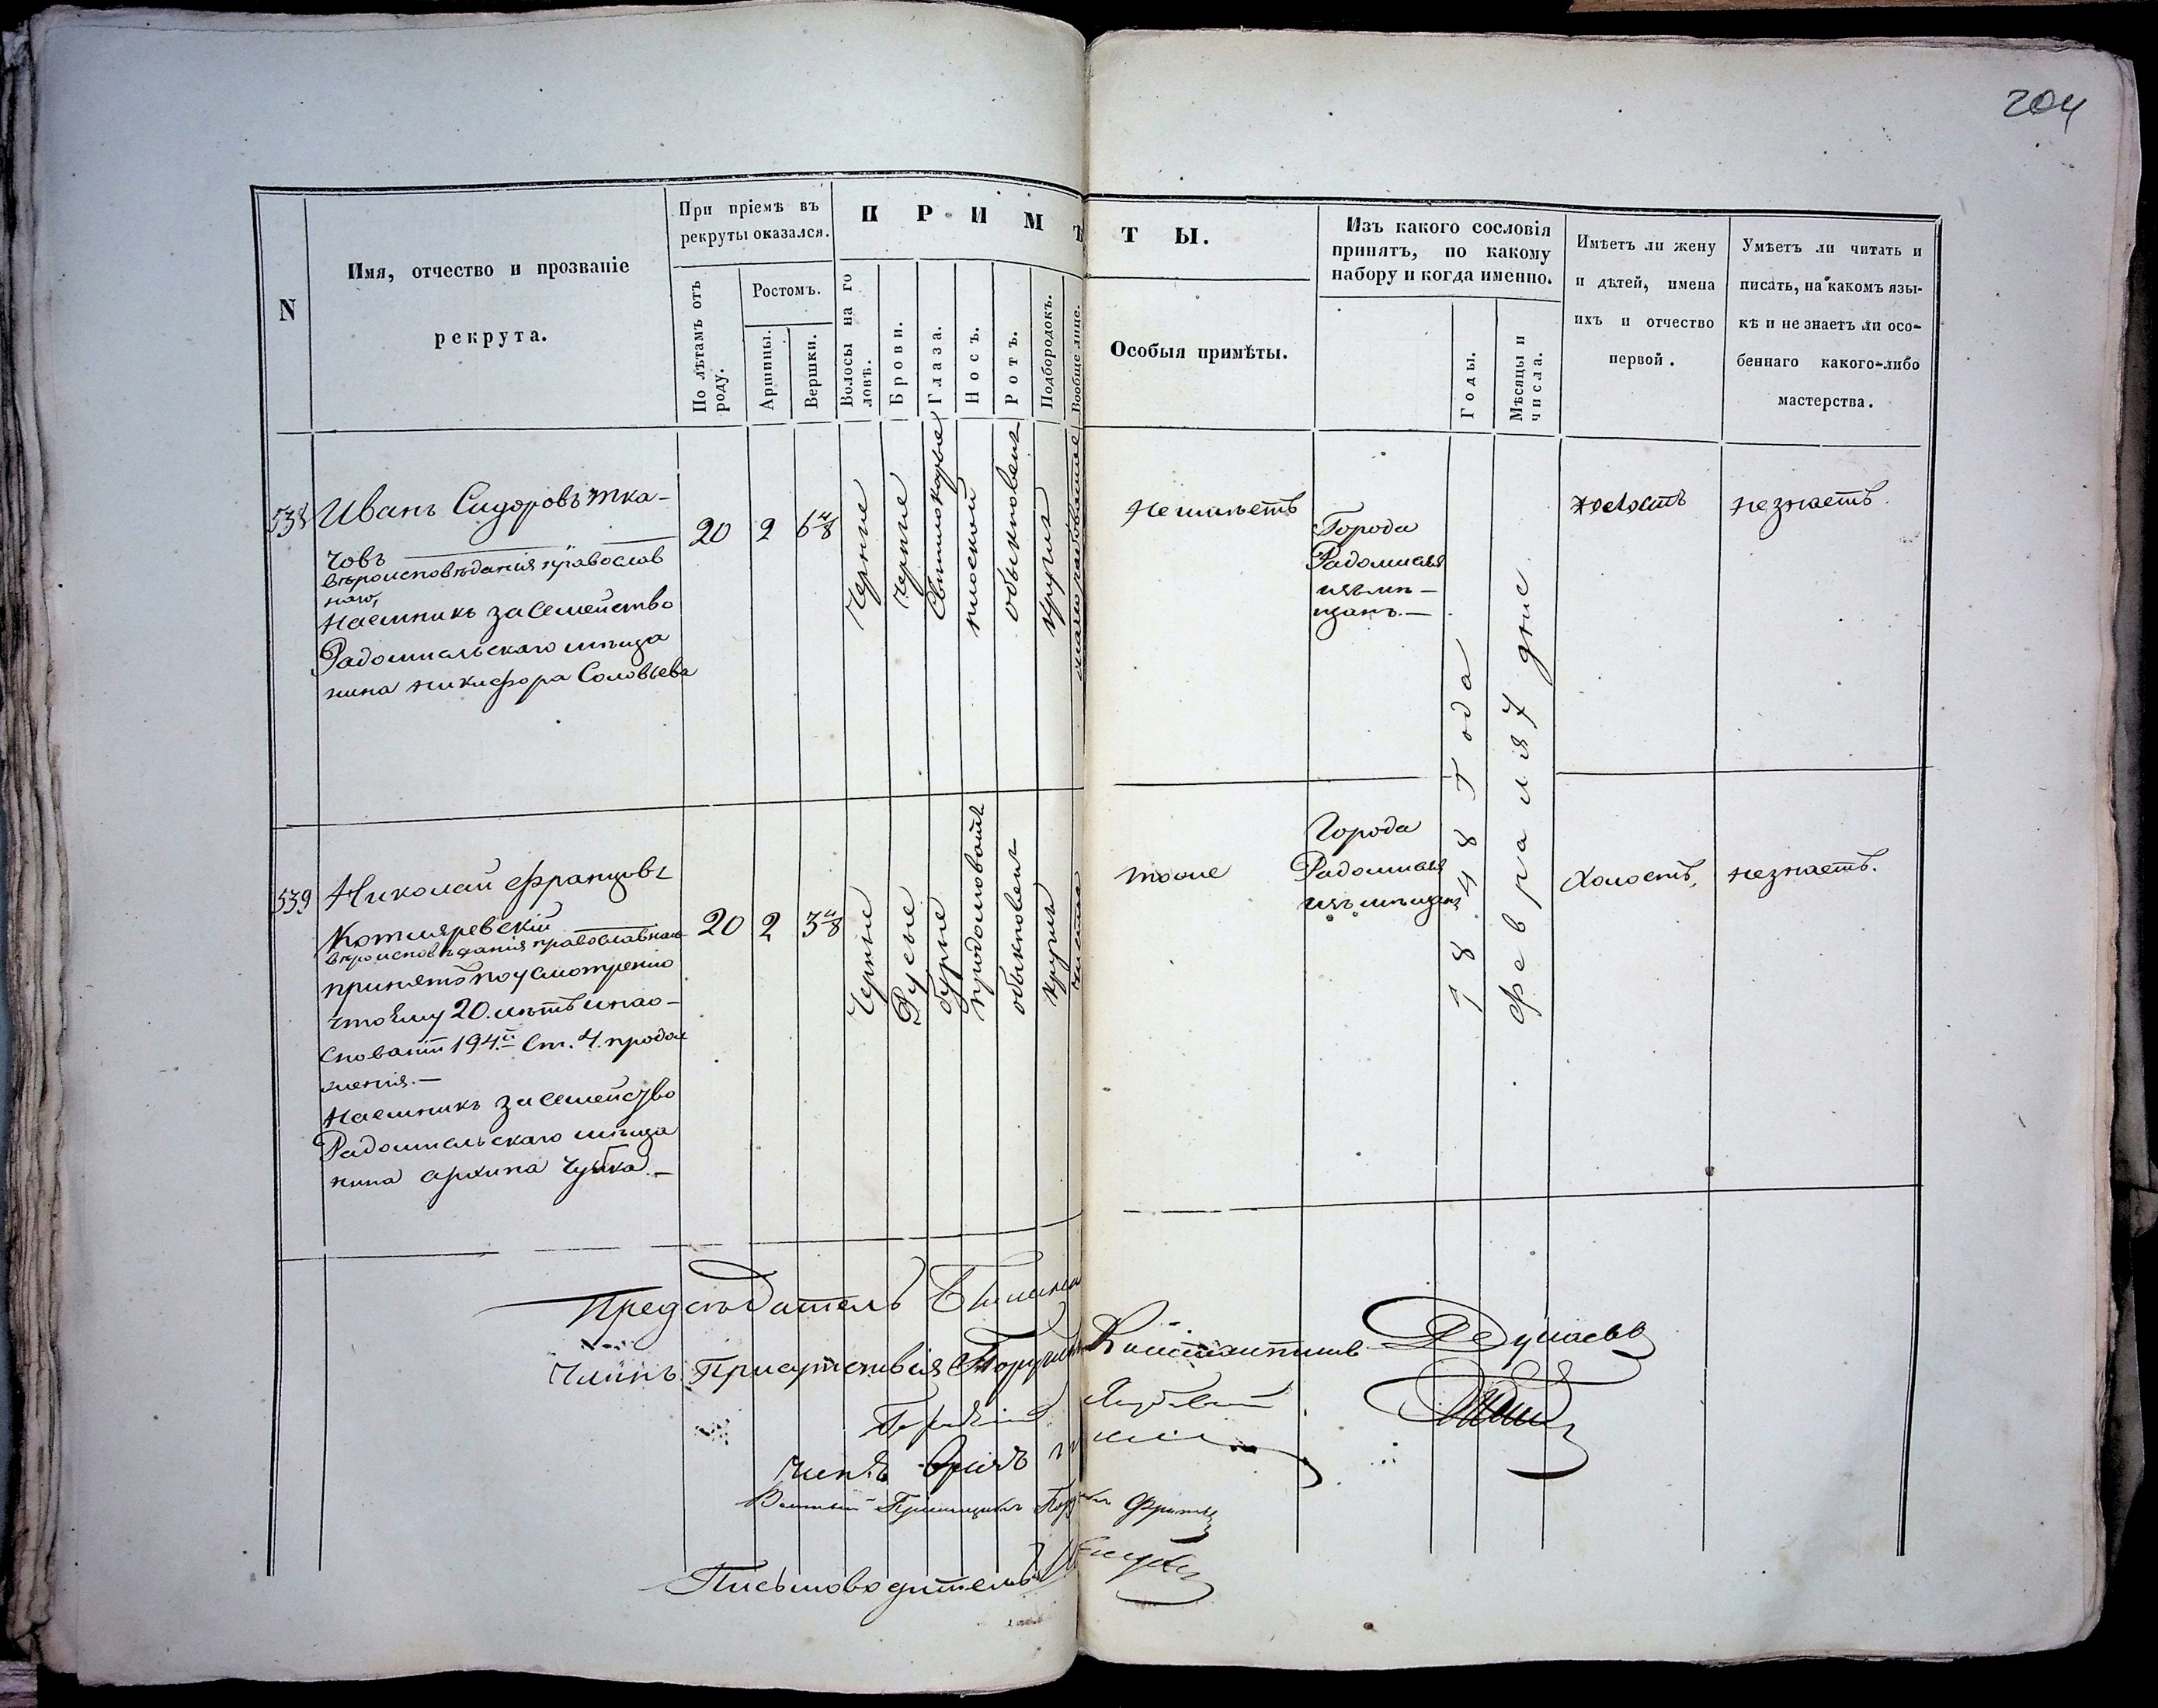 204
N
Имя, отчество и прозваніе
рекрута.
При пріемѣ въ
рекруты оказался.
По лѣтамъ отъ
роду.
Ростомъ.
Аршины.
Вершки.
П Р И М Ѣ Т Ы.
Волосы на го
ловѣ.
Брови.
Глаза.
Носъ.
Ротъ.
Подбородокъ.
Вообще лице.
Особыя примѣты.
Изъ какого сословія
принятъ, по какому
набору и когда именно.
Годы.
Мѣсяцы и
числа.
Имѣетъ ли жену
и дѣтей, имена
ихъ и отчество
первой.
Умѣетъ ли читать и
писать, на какомъ язы-
кѣ и не знаетъ ли осо-
беннаго какого-либо
мастерства.
538
Иванъ Сидоровъ Тка-
човъ
вѣроисповѣданія православ
наго,
Наемникъ за семейство
Радомысльскаго мѣща
нина Никифора Соловьева
20
2
6 4/8
Черные
черные
Свѣтлокарые
плоской
обыкновен
кругл
Неимѣетъ
Города
Радомысля
изъ мѣ-
щанъ.—
холостъ
незнаетъ
1848 Года
Февраля 7 дня
539
Николай Францовъ
Котляревскій
вѣроисповѣданія православнаго
принятъ по усмотренію
что ему 20. лѣтъ и на о-
снованіи 194.й Ст. 4. продол
женія.—
Наемникъ за семейство
Радомысльскаго мѣща
нина Архипа Чубка.—
20
2
3 4/8
Черные
Русые
бурые
продолговатъ
обыкновен
кругл
чистое
тоже
Города
Радомысля
изъ мѣщанъ
Холостъ,
незнаетъ.
Предсѣдатель
Членъ Присутствія
Константинъ
Членъ Врачъ
Военный Пріемщикъ
Письмоводитель